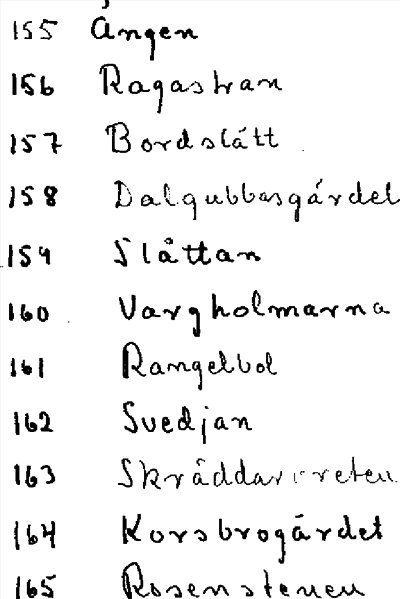 155 Ängen
156 Ragastran
157 Bordslått
158 Dalgubbasgärdet
159 Slåttan
160 Vargholmarna
161 Rangelbol
162 Svedjan
163
164 Korsbrogärdet
165 Rosenstenen